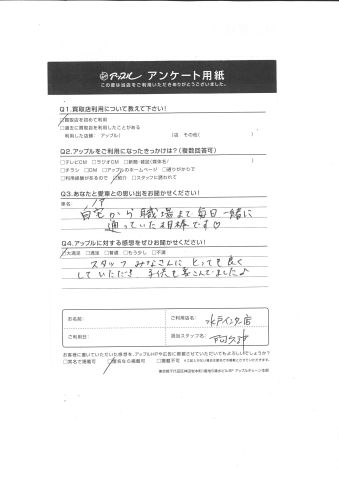 アップル アンケート用紙
この度は当店をご利用いただきありがとうございました。
Q1.買取店利用について教えて下さい!
□買取店を初めて利用
□過去に買取店を利用したことがある
利用した店舗: アップル( )店 その他( )
Q2.アップルをご利用になったきっかけは?(複数回答可)
□テレビCM □ラジオCM □新聞・雑誌(媒体名/ )
□チラシ □DM □アップルのホームページ □通りがかりで
□利用経験があるので □紹介 □スタッフに誘われて
Q3.あなたと愛車との思い出をお聞かせください!
車名:
自宅から職場まで毎日一緒に
通っていた相棒です♡
Q4.アップルに対する感想をぜひお聞かせください!
□大満足 □満足 □普通 □もう少し □不満
スタッフみなさんにとっても良く
していただき 子供も喜んでました♪
お名前:
ご利用店名: 水戸インター店
ご利用日:
担当スタッフ名:
お客様に書いていただいた感想を、アップルHPや広告に掲載させていただいてもよろしいでしょうか?
□実名で掲載可 □匿名なら掲載可 □掲載不可